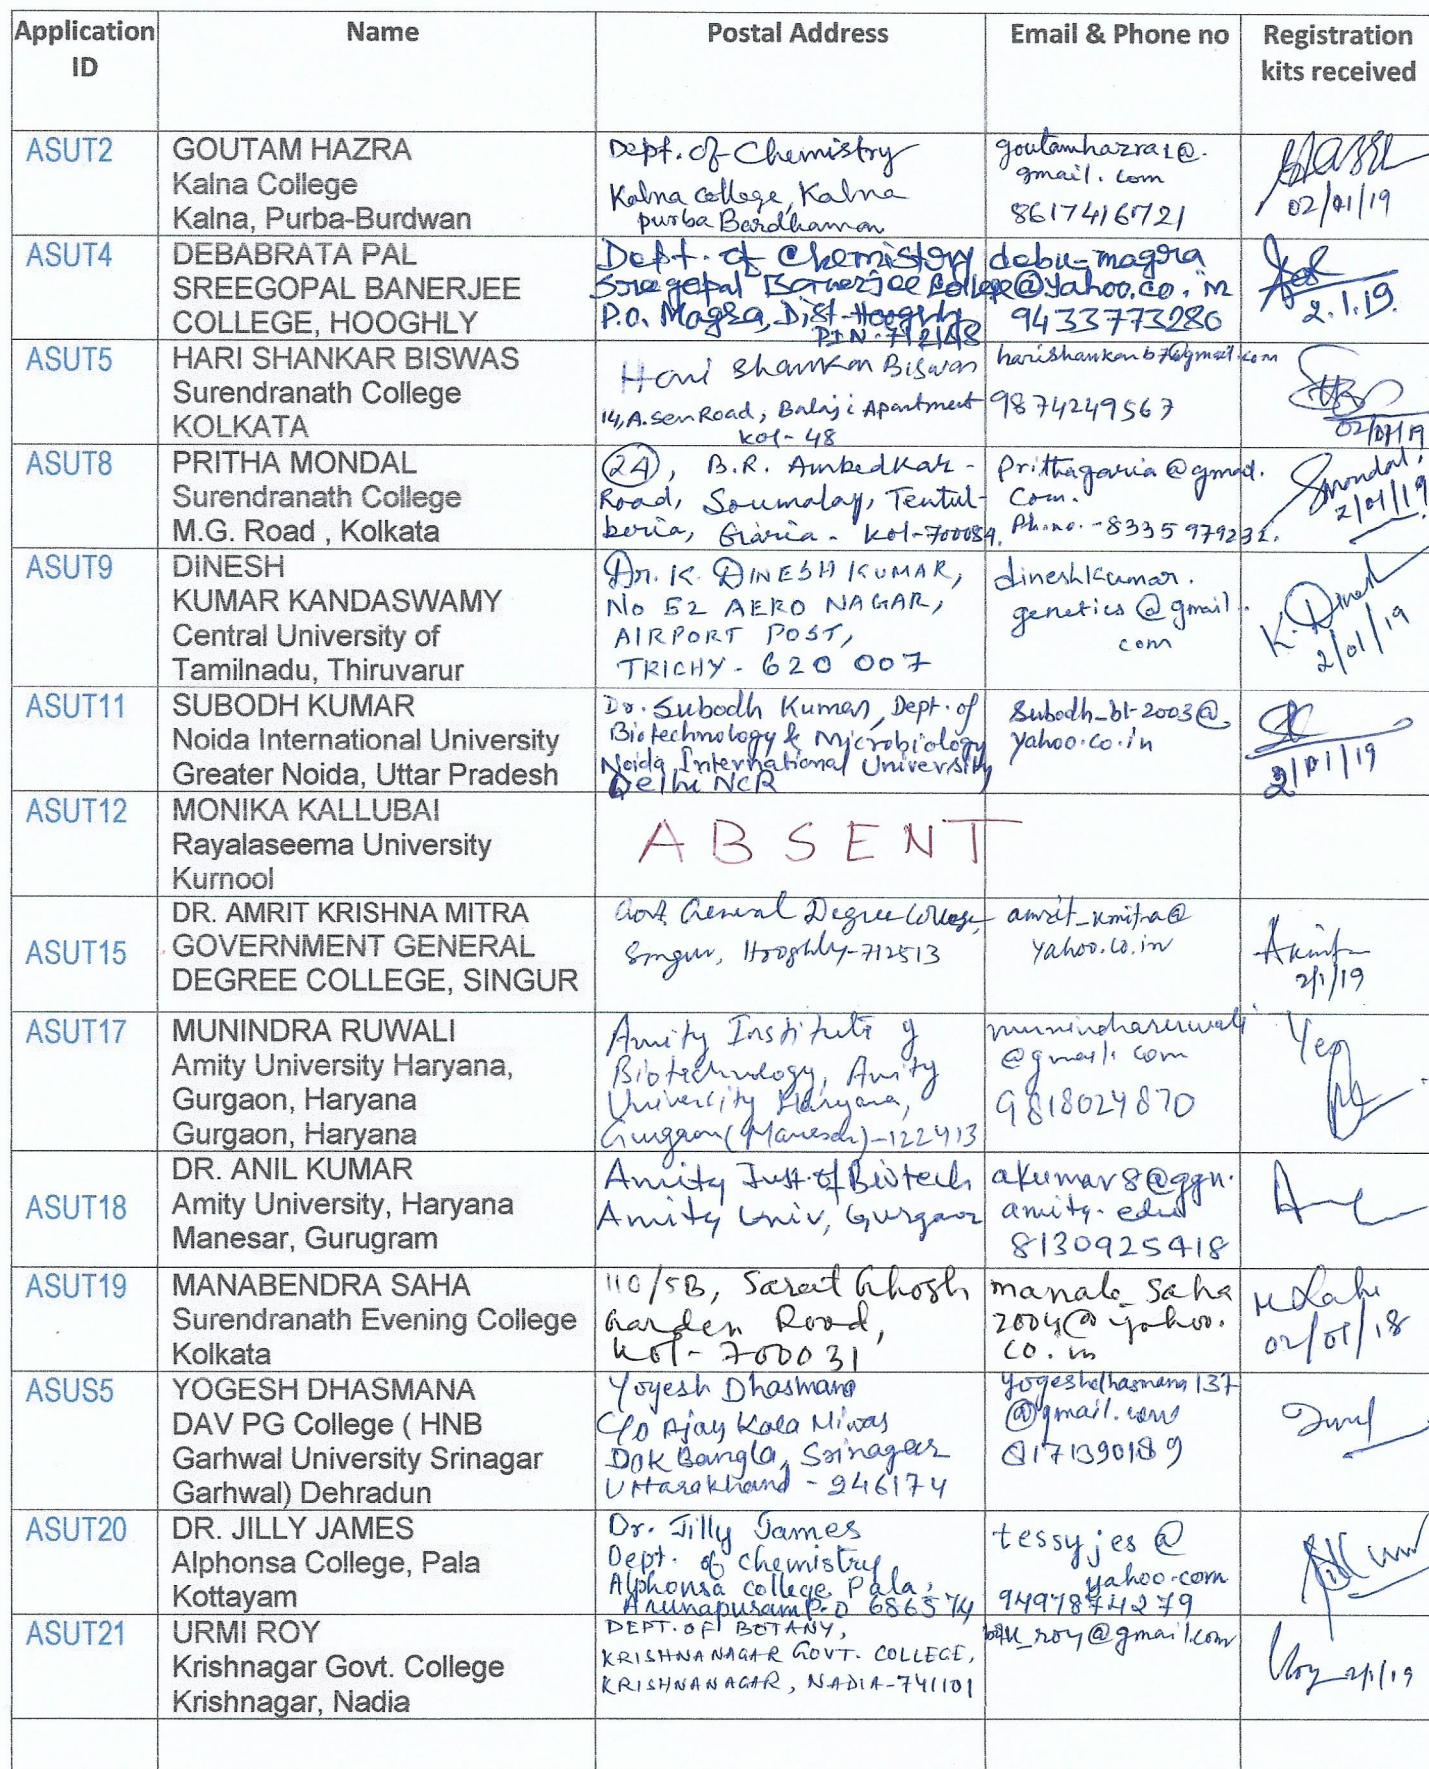 Application ID Name Postal Address Email & Phone no Registration kits received
ASUT2
GOUTAM HAZRA
Kalna College
Kalna, Purba-Burdwan
Dept. of Chemistry
Kalna college, Kalna
purba Bardhaman
goutamhazra1@.
gmail.com
8617416721
02/01/19
ASUT4
DEBABRATA PAL
SREEGOPAL BANERJEE
COLLEGE, HOOGHLY
Dept. of Chemistry
Sreegopal Banerjee College
P.O. Magra, Dist-Hooghly
PIN-712148
debu_magra
@yahoo.co.in
9433773280
2.1.19.
ASUT5
HARI SHANKAR BISWAS
Surendranath College
KOLKATA
Hari Shankar Biswas
14, A. Sen Road, Balaji Apartment
Kol-48
harishankarb7@gmail.com
9874249567
02/01/19
ASUT8
PRITHA MONDAL
Surendranath College
M.G. Road , Kolkata
24, B.R. Ambedkar-
Road, Soumalay, Tentul-
beria, Garia - Kol-700084.
Prithagaria@gmail.
Com.
Ph.no. - 8335979232.
Smondal,
2/01/19
ASUT9
DINESH
KUMAR KANDASWAMY
Central University of
Tamilnadu, Thiruvarur
Dr. K. DINESH KUMAR,
No 52 AERO NAGAR,
AIRPORT POST,
TRICHY - 620 007
dineshkumar.
genetics@gmail.
com
K. Dinesh
2/01/19
ASUT11
SUBODH KUMAR
Noida International University
Greater Noida, Uttar Pradesh
Dr. Subodh Kumar, Dept. of
Biotechnology & Microbiology
Noida International University
Delhi NCR
Subodh_bt2003@
yahoo.co.in
2/01/19
ASUT12
MONIKA KALLUBAI
Rayalaseema University
Kurnool
ABSENT
ASUT15
DR. AMRIT KRISHNA MITRA
GOVERNMENT GENERAL
DEGREE COLLEGE, SINGUR
Govt. General Degree College,
Singur, Hooghly-712513
amrit_kmitra@
yahoo.co.in
2/1/19
ASUT17
MUNINDRA RUWALI
Amity University Haryana,
Gurgaon, Haryana
Gurgaon, Haryana
Amity Institute of
Biotechnology, Amity
University Haryana,
Gurgaon (Manesar)-122413
munindraruwali
@gmail.com
9818024870
Yes
ASUT18
DR. ANIL KUMAR
Amity University, Haryana
Manesar, Gurugram
Amity Inst. of Biotech
Amity Univ, Gurgaon
akumar8@ggn.
amity.edu
8130925418
ASUT19
MANABENDRA SAHA
Surendranath Evening College
Kolkata
110/5B, Sarat Ghosh
Garden Road,
Kol-700031
manab_saha
2004@yahoo.
co.in
M Saha
02/01/18
ASUS5
YOGESH DHASMANA
DAV PG College ( HNB
Garhwal University Srinagar
Garhwal) Dehradun
Yogesh Dhasmana
C/o Ajay Kala Niwas
Dak Bangla, Srinagar
Uttarakhand - 246174
yogeshdhasmana137
@gmail.com
8171390189
ASUT20
DR. JILLY JAMES
Alphonsa College, Pala
Kottayam
Dr. Jilly James
Dept. of chemistry
Alphonsa college, Pala,
Arunapuram P.O 686574
tessyjes@
yahoo.com
9497874279
ASUT21
URMI ROY
Krishnagar Govt. College
Krishnagar, Nadia
DEPT. OF BOTANY,
KRISHNANAGAR GOVT. COLLEGE,
KRISHNANAGAR, NADIA-741101
_roy@gmail.com
Uroy 2/1/19